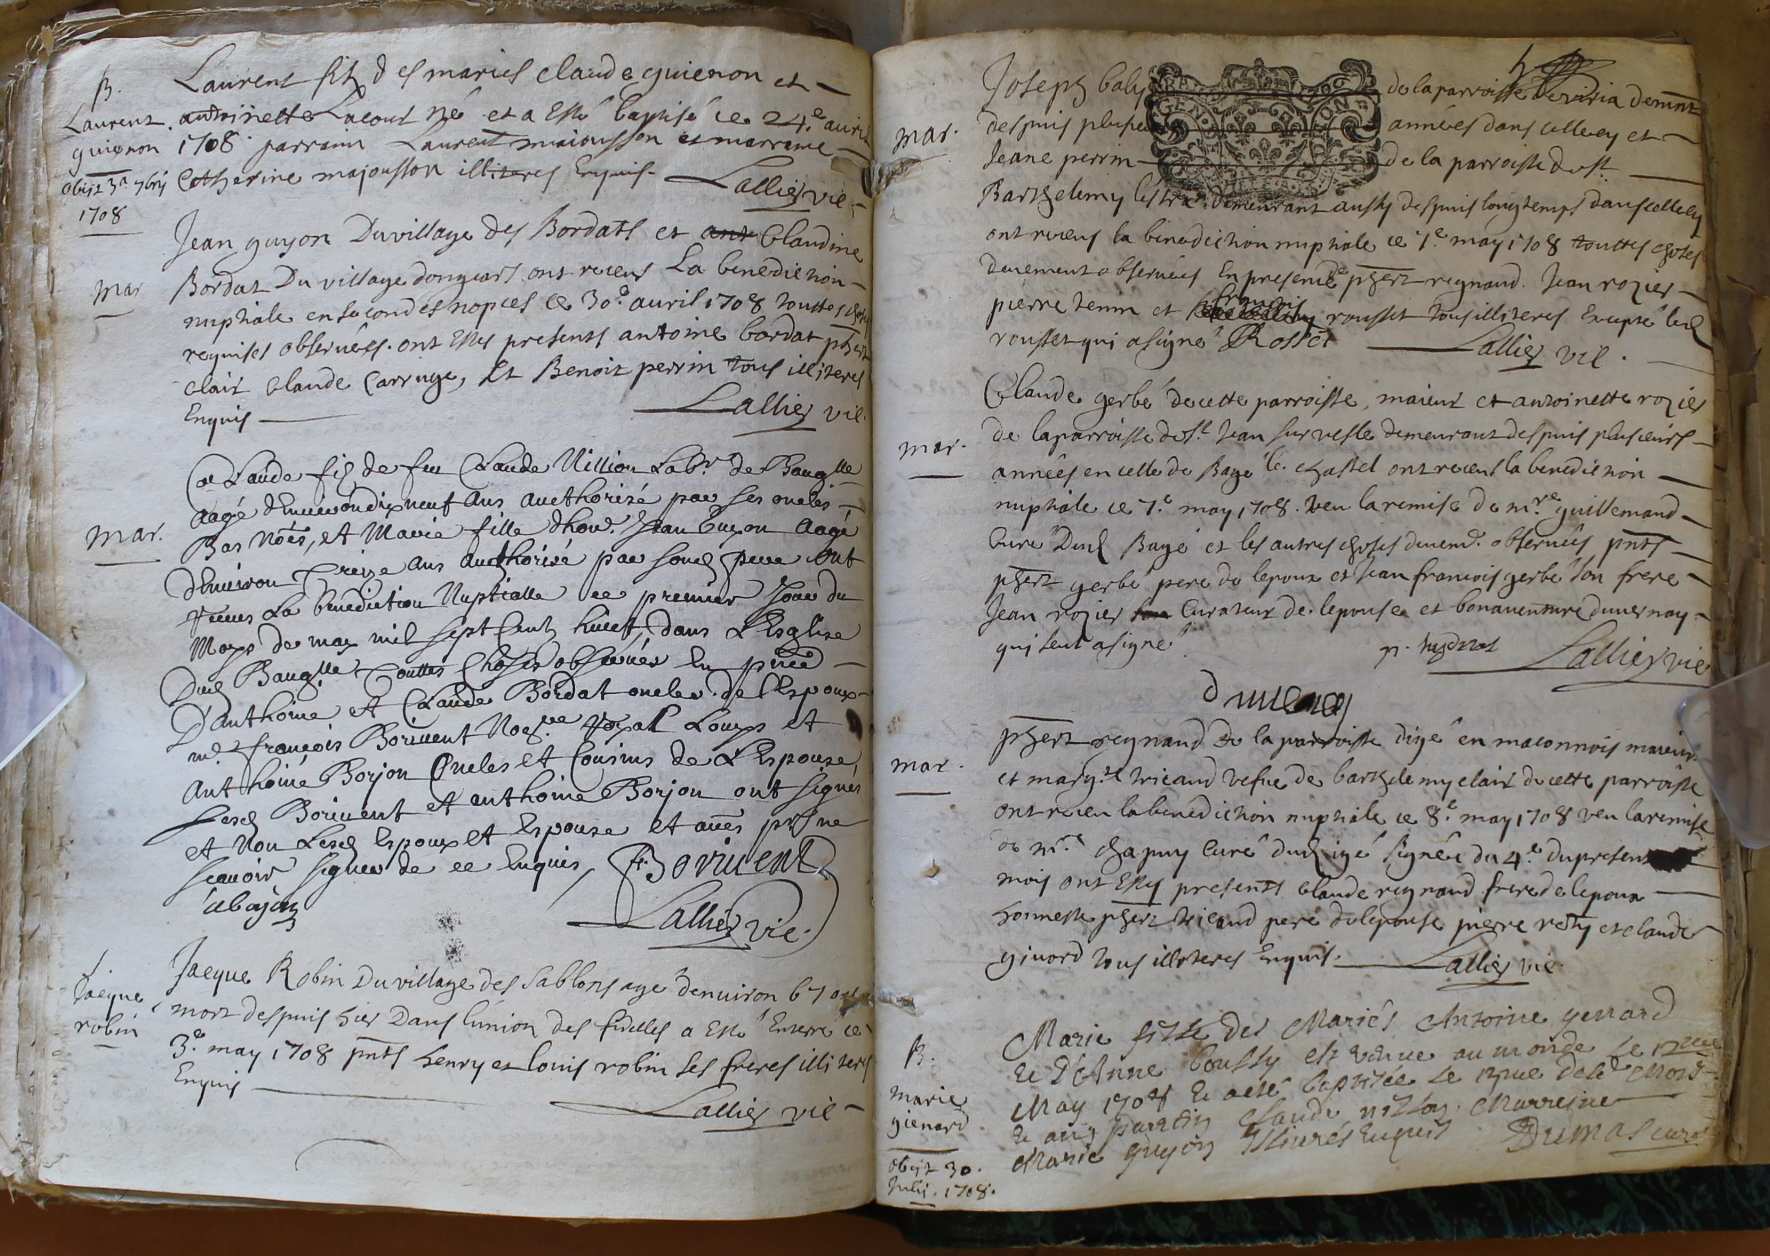 B.
Laurent
guienon
obijt 3a 7bris
1708
Laurent filz des mariés claude guienon et
antoinette Lacour né et a Esté baptisé ce 24.e avril
1708 parrain Laurent maiousson et marraine
Catherine majousson illiteres Enquis.
Lallier vic.
mar
Jean guyon Du village des Bordats et ant Claudine
Bordat Du village donjears ont receus La benediction
nuptiale en secondes nopces ce 30.e avril 1708 touttes choses
requises observées. ont Estes presents antoine bordat phert
clair Claude Carruge, Et Benoit perrin tous illiteres
Enquis
Lallier vic.
mar.
Claude filz de feu Claude Nillion Labr. de Baugelle
aagé d'Environ dixneuf ans aucthorizé par ses oncles
Bas Nões, et Marie fille d'hon. Jean buyon aagé
d'Environ treize ans aucthorisé par sond pere ont
receus La benediction Nuptialle ce premier Jour du
Moys de may mil sept Cent huict, dans L'Esglise
Dud Baugelle touttes Choses observées En pñce
D'anthoine et Claude Bordat oncles de l'Espoux
me. françois Borivent Noe.re Royal Louys et
anthoine Borjon Oncles et Cousins de L'Espouse,
Lesd Borivent et anthoine Borjon ont signés
et Non Lesd Espoux et Espouse et aües pr ne
sçavoir signer de ce Enquis,
F. Borivent
Lallier vic.
Jacque
robin
Jacque Robin Du village des sablons agé d'environ 67 ans
mort despuis hier Dans l'union des fidelles a Esté Enterré ce
3.e may 1708 pnts henry et louis robin ses freres illiteres
Enquis
Lallier vic.
mar.
Joseph baly de la parroisse de viria demnt
despuis plusieurs années dans celle cy et
Jeane perrin de la parroisse de st.
Barthelemy lestra demeurant aussy despuis longtemps dans celle cy
ont receus la benediction nuptiale ce 7.e may 1708 touttes choses
duement observées En presence phert regnaud. Jean rozier
pierre temn et françois rousset tous illiteres Excepté led
rousset qui a signé Rosset
Lallier vic.
mar.
Claude gerbé de cette parroisse, maieur et antoinette rozier
de la parroisse de st. Jean sur vesle demeurant despuis plusieurs
années en celle de Bagé le chastel ont receus la benediction
nuptiale ce 7.e may 1708. veu la remise de mr.e guillemand
Curé Dud Bagé et les autres choses duemt. observées pnts
phert gerbé pere de lepoux et Jean francois gerbé son frere
Jean rozier Curateur de lepouse et bonaventure duvernay
qui seul a signé
Lallier vic
duvernay
mar.
phert regnaud de la parroisse digé en maconnois maieur
et margte. tricaud vefve de barthelemy clair de cette parroisse
ont receu la benediction nuptiale ce 8.e may 1708 veu la remise
de mr.e chapuy Curé dud igé signée du 4.e du present
mois ont Estes presents claude regnaud frere de lepoux
honneste phert tricaud pere de lepouse pierre rety et claude
givord tous illiteres Enquis.
Lallier vic.
B.
marie
gienard
obijt 30.
Julij. 1708.
Marie fille des Mariés Antoine genard
et d'Anne boussy est venue au monde le 12me
May 1708 et a esté baptizée le 12me dud. mois
et an parrain Claude nillon. Marreine
Marie guyon Illitérés Enquis
Dumas curé